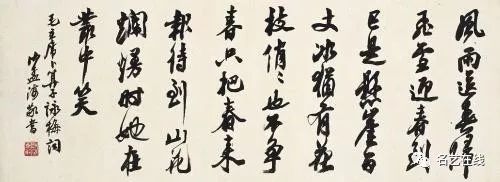 風雨送春歸
飛雪迎春到
已是懸崖百
丈冰猶有花
枝俏〻也不爭
春只把春來
報待到山花
爛熳時她在
叢中笑
毛主席卜算子詠梅詞
沙孟海敬書
名艺在线